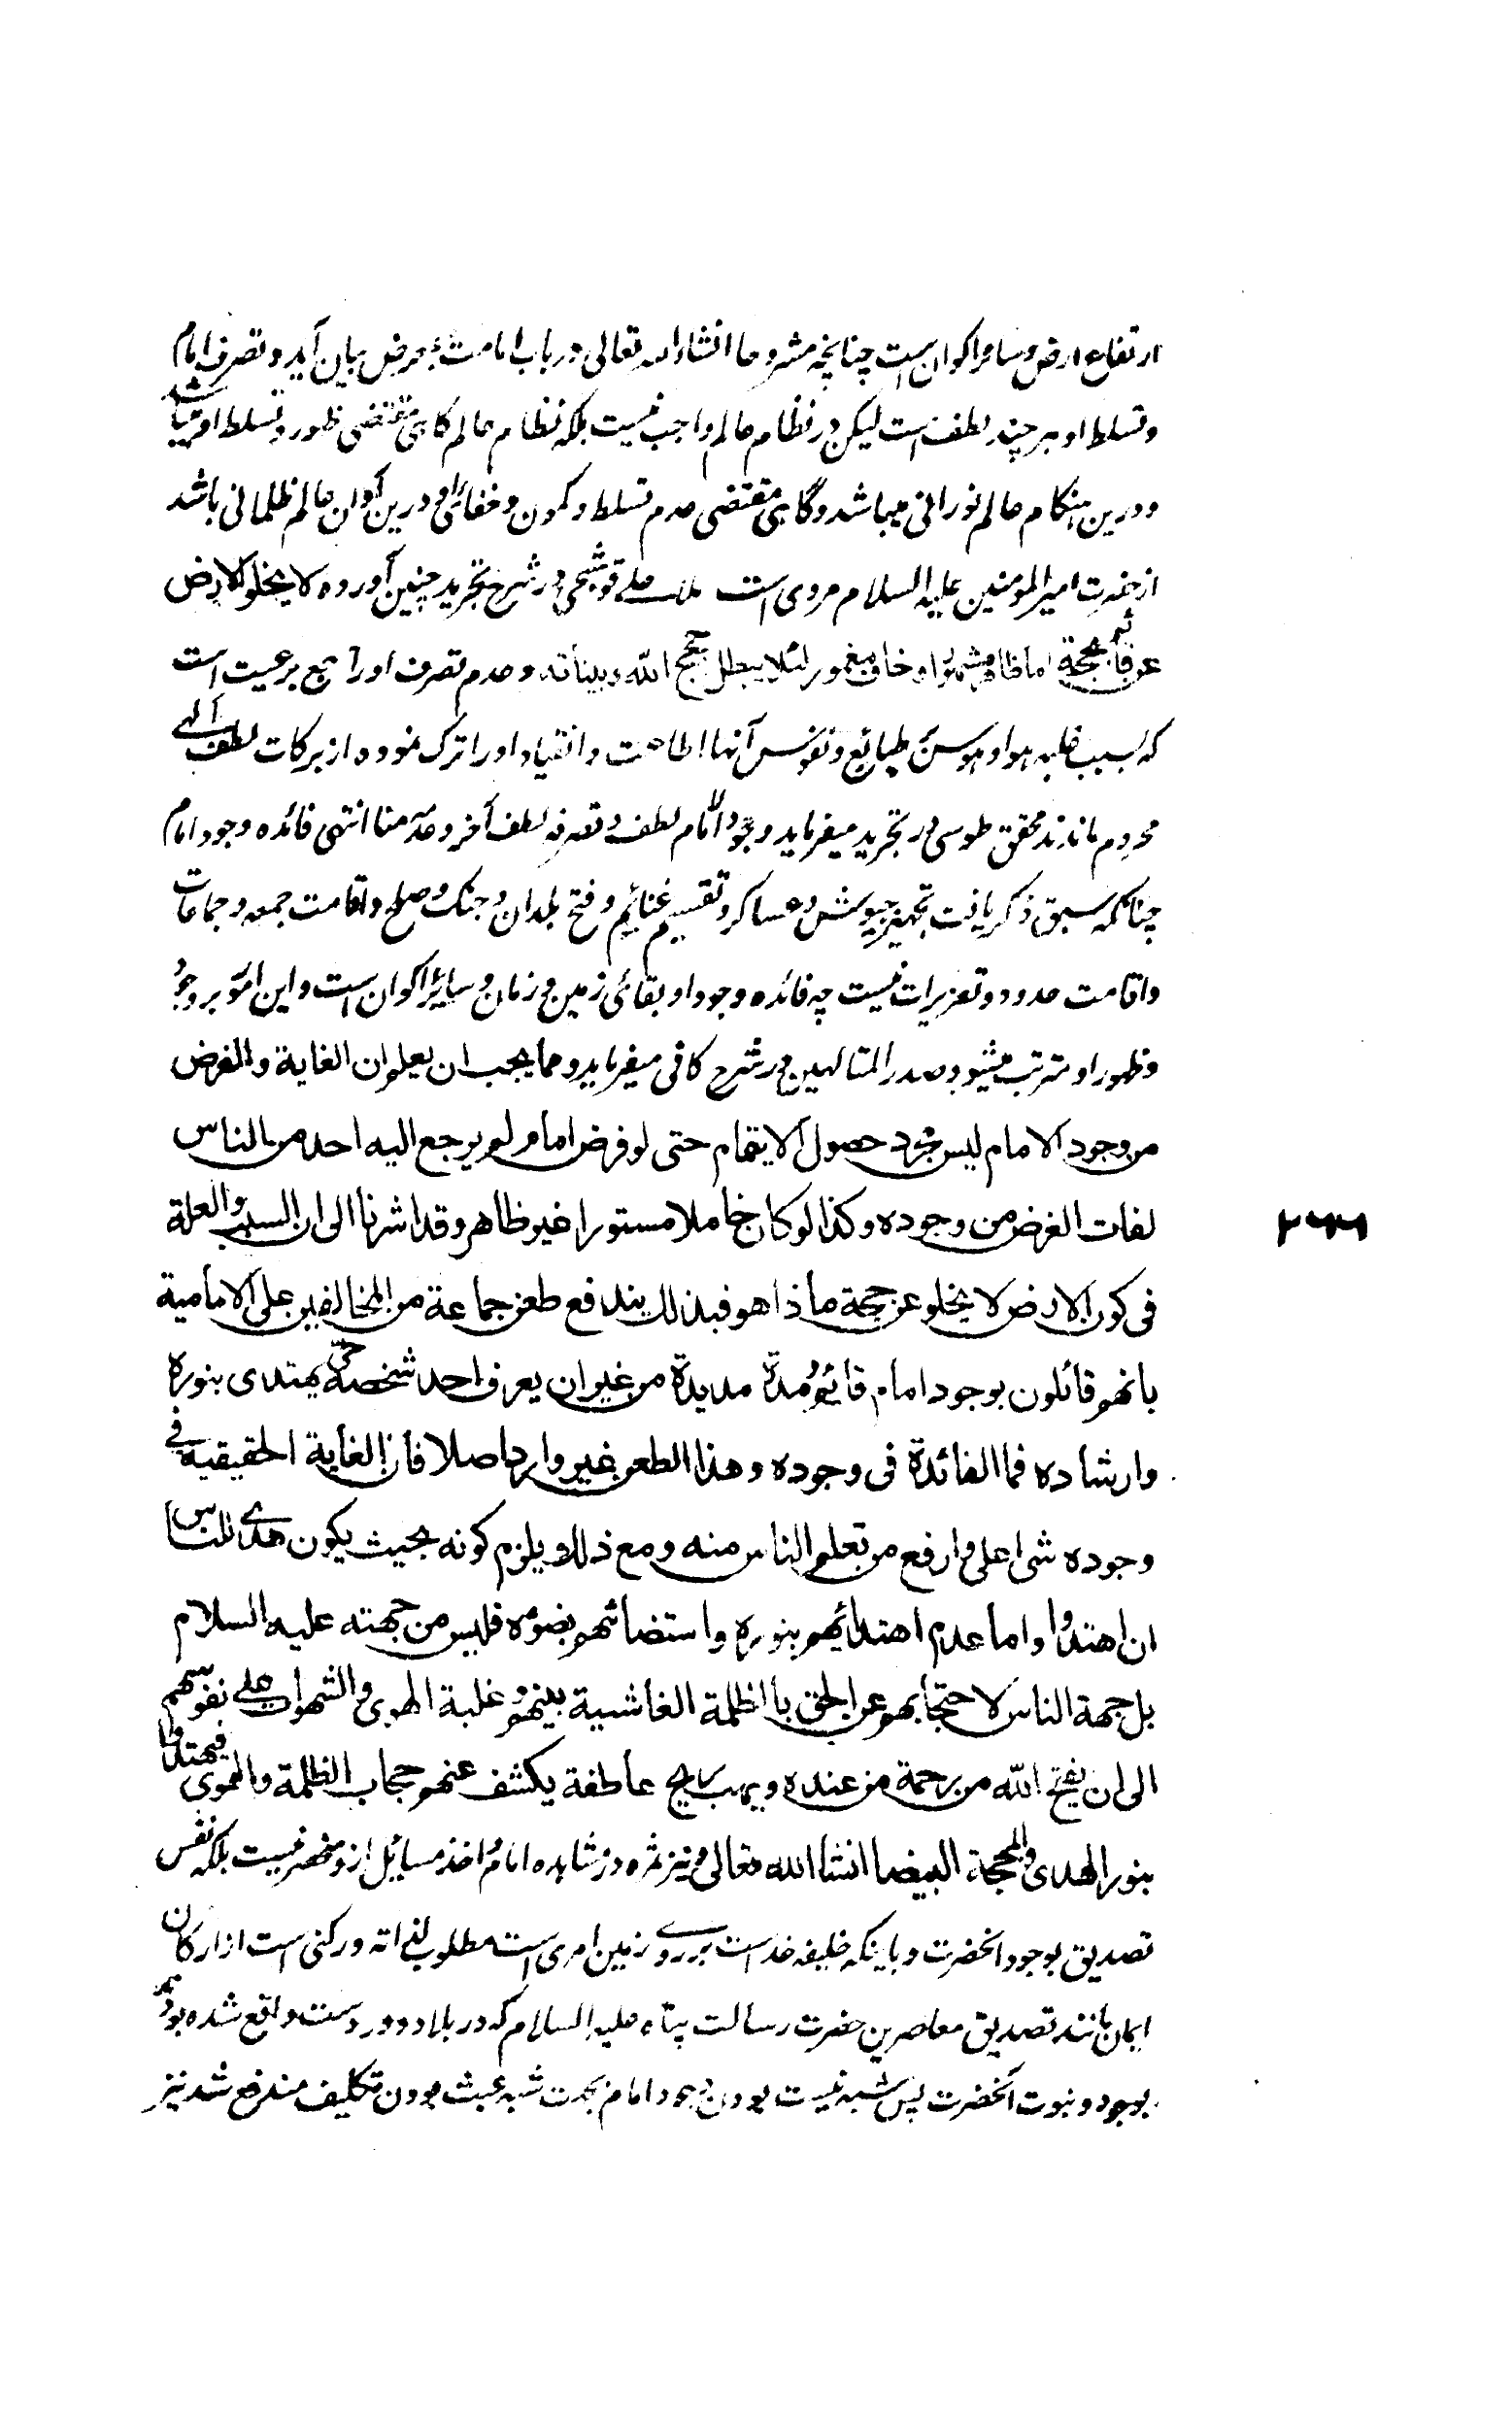 ارتفاع ارض و سایر اکوان است چنانچه مشروحا انشاء الله تعالی در باب امامت بمعرض بیان آید و تصرف امام
و تسلط او هر چند لطف است لیکن در نظام عالم واجب نیست بلکه نظام عالم گاهی مقتضی ظهور و تسلط او میباشد
و درین هنگام عالم نورانی میباشد و گاهی مقتضی عدم تسلط و کمون و خفائی او و درین آوان عالم ظلمانی باشد
از حضرت امیر المومنین علیه السلام مروی است ملا علے قوشجی در شرح تجرید چنین آورده لا یخلو الارض
عن قائم بحجة اما ظاهر مشهور او خاف مغمور لئلا یبطل حجج الله وبیناته و عدم تصرف او راجع برعیت است
که بسبب غلبه هوا و هوس طبایع و نفوس آنها اطاعت و انقیاد او را ترک نموده از برکات لطف الٰهے
محروم ماندند محقق طوسی در تجرید میفرماید وجود الامام لطف و تصرفه لطف آخر و عدمه منا انتهی فائده وجود امام
چنانکه سبق ذکر یافت تجهیز جیوش و عساکر و تقسیم غنایم و فتح بلدان و جنگ و صلح و اقامت جمعه و جماعات
و اقامت حدود و تعزیرات نیست چه فائده وجود او بقائی زمین و زمان و سایر اکوان است و این امور بر وجود
و ظهور او مترتب میشود صدر المتالهین در شرح کافی میفرماید ومما یجب ان یعلم ان الغایة والغرض
من وجود الامام لیس مجرد حصول الایتمام حتی لو فرض امام لم یرجع الیه احد من الناس
لفات الغرض من وجوده وکذا لو کان خاملا مستورا غیر ظاهر وقد اشرنا الی ان السبب والعلة
فی کون الارض لا یخلو عن حجة ماذا هو فبذلک یندفع طعن جماعة من المخالفین علی الامامیة
بانهم قائلون بوجود امام قائم مدة مدیدة من غیر ان یعرف احد شخصه حتی یهتدی بنوره
وارشاده فما الفائدة فی وجوده وهذا الطعن غیر وارد اصلا فان الغایة الحقیقیة فی
وجوده شی اعلی وارفع من تعلم الناس منه ومع ذلک یلزم کونه بحیث یکون هدی للناس
ان اهتدوا واما عدم اهتدائهم بنوره واستضائهم بضوئه فلیس من جهته علیه السلام
بل جهة الناس لاحتجابهم عن الحق باالظلمة الغاشیة بینهم وغلبة الهوی والشهوات علی نفوسهم
الی ان یفتح الله من رحمة من عنده ویهب ریح عاطفة یکشف عنهم حجاب الظلمة والهوی فیهتدوا
بنور الهدی والمحجة البیضا انشا الله تعالی و نیز ثمره در مشاهده امام و اخذ مسایل ازو منحصر نیست بلکه نفس
تصدیق بوجود آنحضرت و باینکه خلیفه خداست بر روے زمین امری است مطلوب لذاته و رکنی است از ارکان
ایمان مانند تصدیق معاصرین حضرت رسالت پناه علیه السلام که در بلاد دور دست واقع شده بودند
بوجود و نبوت آنحضرت پس شبه نیست بودن وجود امام شبه عبث بودن تکلیف مندفع شد نیز